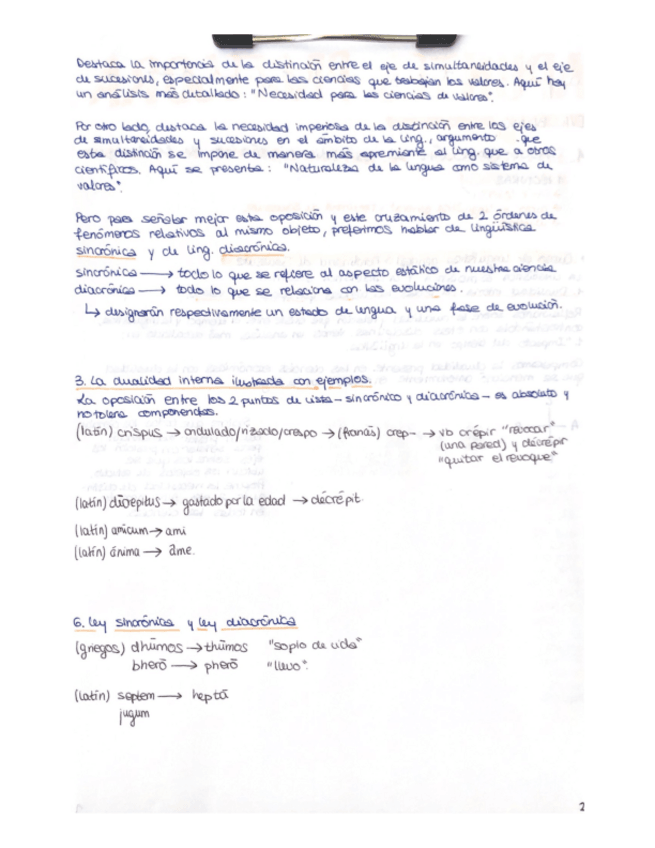 Destaca la importancia de la distinción entre el eje de simultaneidades y el eje
de sucesiones, especialmente para las ciencias que trabajan los valores. Aquí hay
un análisis más detallado: "Necesidad para las ciencias de valores".
Por otro lado, destaca la necesidad imperiosa de la distinción entre los ejes
de simultaneidades y sucesiones en el ámbito de la ling., argumento que
esta distinción se impone de manera más apremiante al ling. que a otros
científicos. Aquí se presenta: "Naturaleza de la lengua como sistema de
valores".
Pero para señalar mejor esta oposición y este cruzamiento de 2 órdenes de
fenómenos relativos al mismo objeto, preferimos hablar de lingüística
sincrónica y de ling. diacrónica.
sincrónica → todo lo que se refiere al aspecto estático de nuestra ciencia
diacrónica → todo lo que se relaciona con las evoluciones.
↳ designarán respectivamente un estado de lengua y una fase de evolución.
3. La dualidad interna ilustrada con ejemplos.
La oposición entre los 2 puntos de vista - sincrónico y diacrónico - es absoluto y
no tolera componendas.
(latín) crispus → ondulado/rizado/crespo → (francés) crep- → vb crépir "revocar"
(una pared) y décrépir
"quitar el revoque"
(latín) → gastado por la edad → décrépit
(latín) amicum → ami
(latín) ánima → âme.
6. Ley sincrónica y ley diacrónica
(griegos) dhūmos → thūmos "soplo de vida"
bherō → pherō "llevo".
(latín) septem → heptá
jugum
2